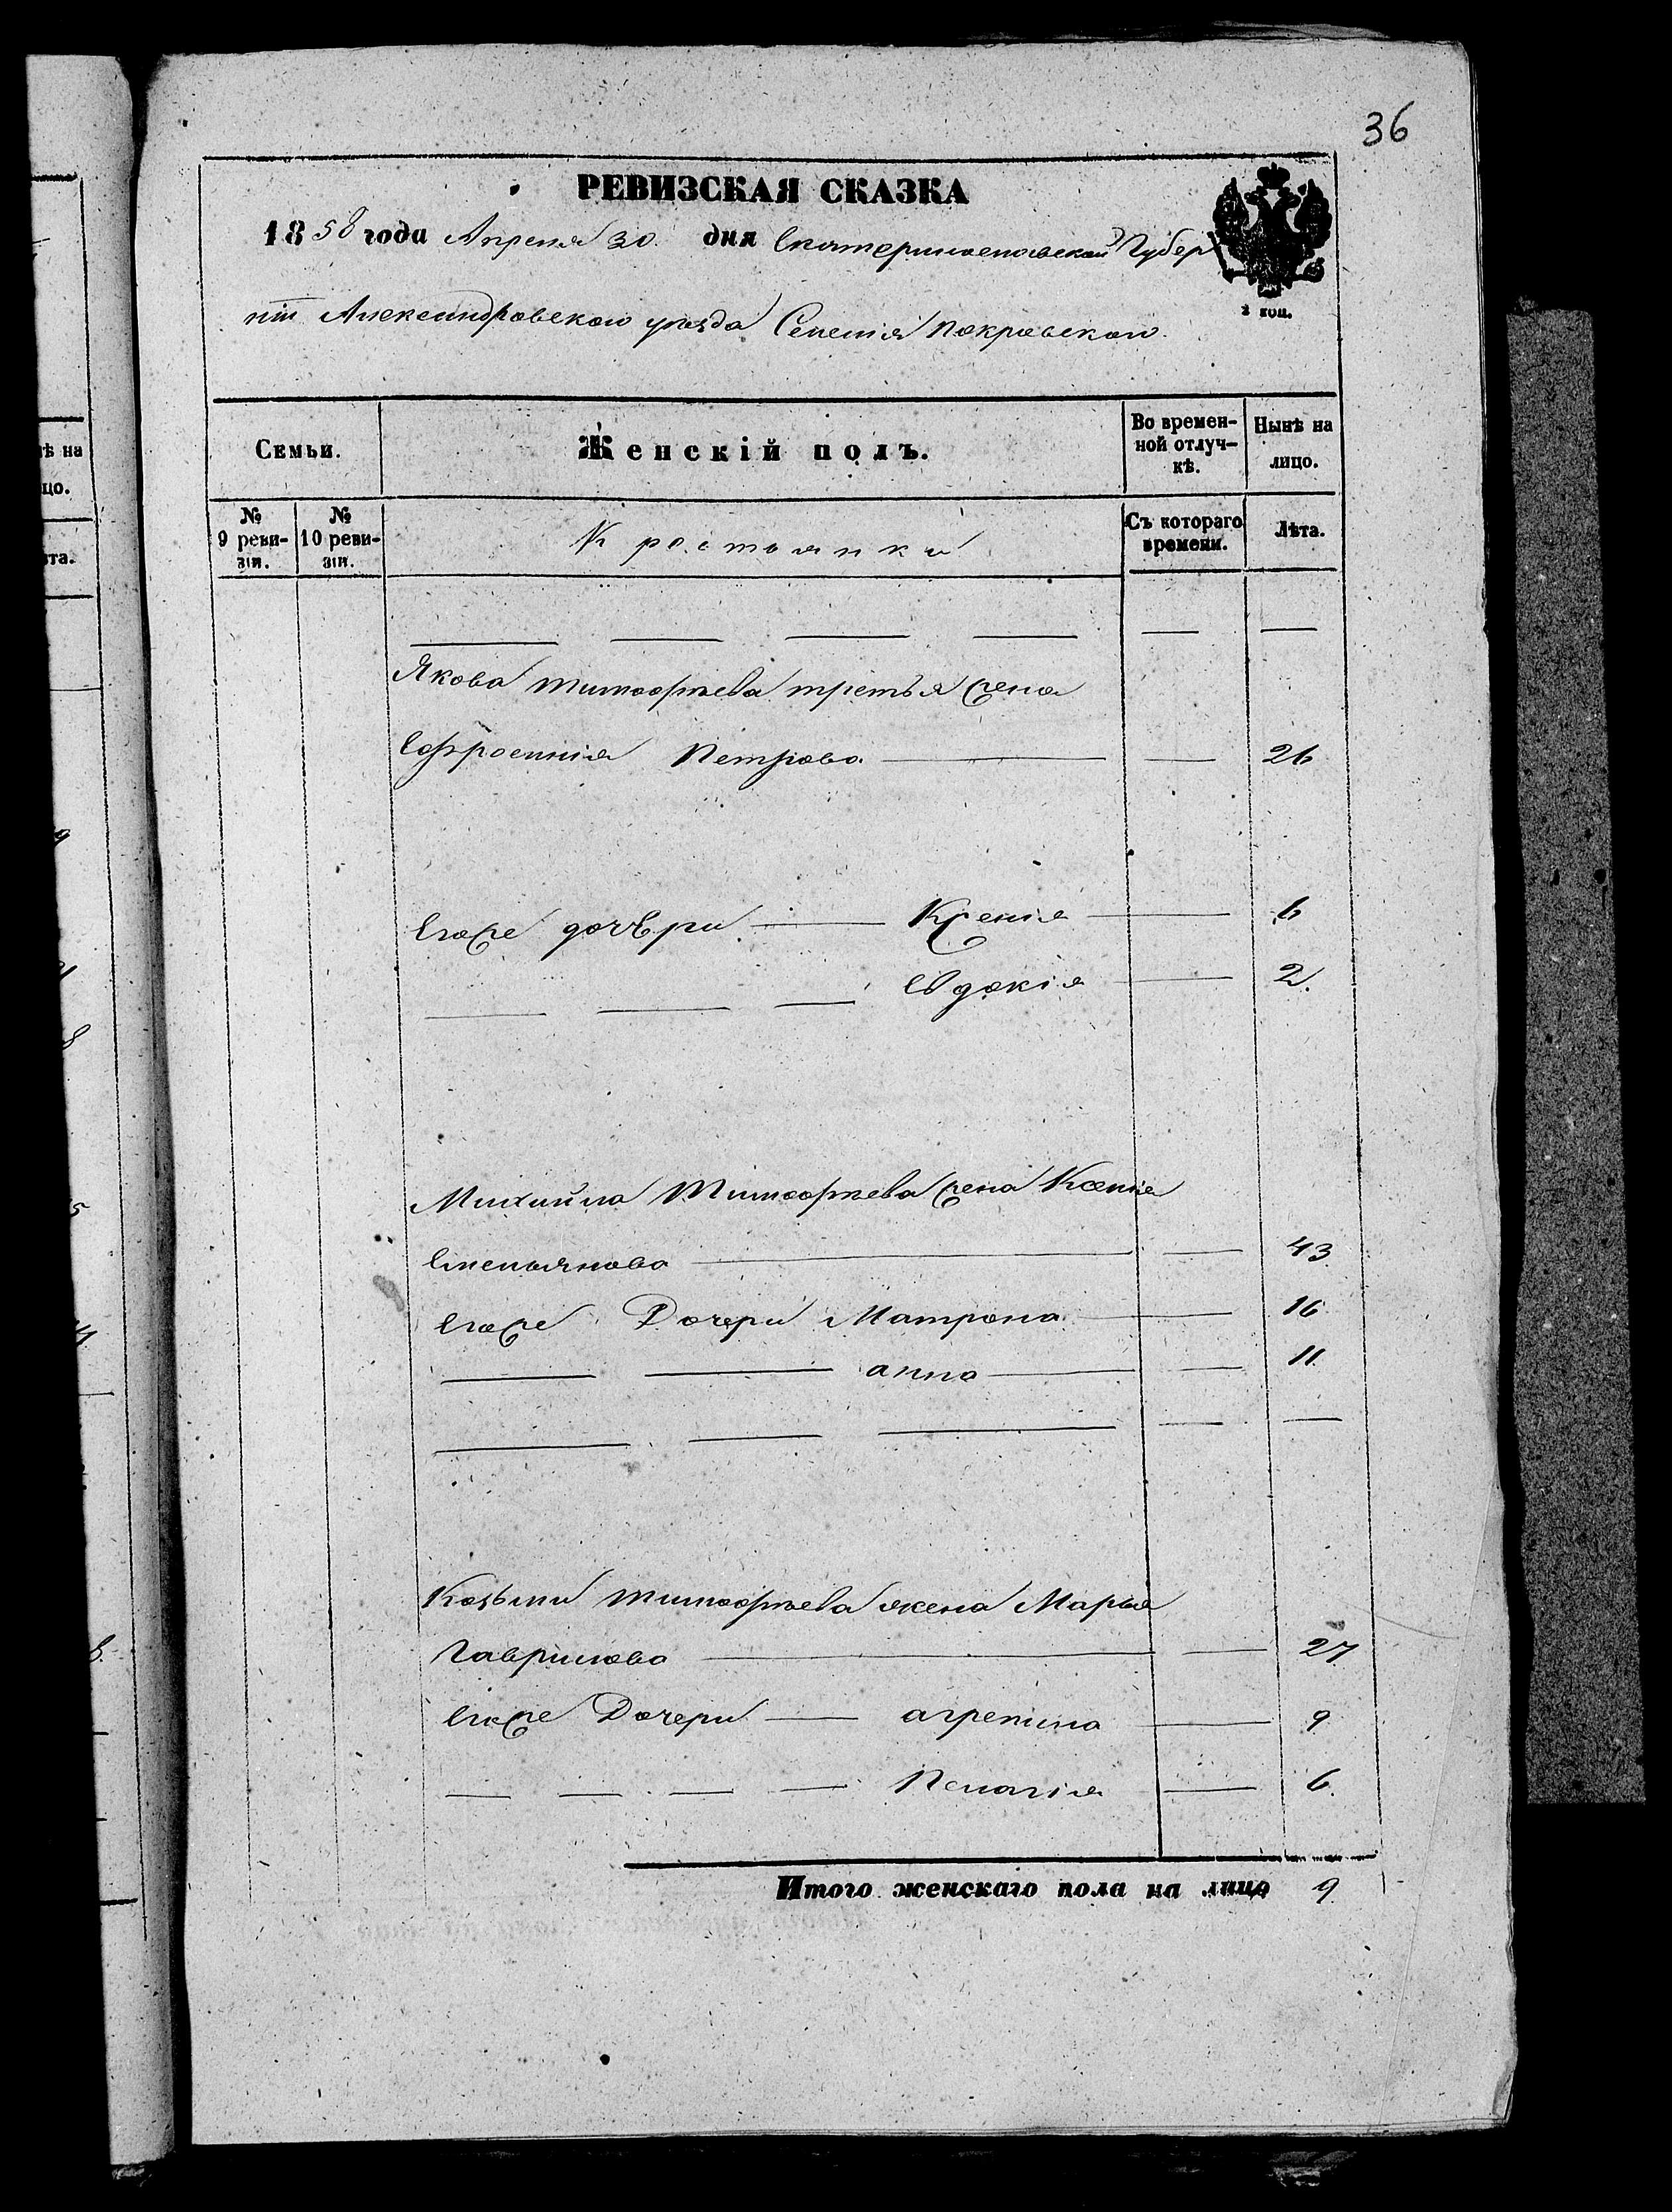 36
РЕВИЗСКАЯ СКАЗКА
1858 года Апреля 30 дня Екатеринославской Губер
нiи Александровского уезда Селенiя Покровского.
2 коп.
Семьи.
Женскій полъ.
Во времен-
ной отлуч-
кѣ.
Нынѣ на
лицо.
№
9 реви-
зіи.
№
10 реви-
зіи.
Крестьянки
Съ котораго
времени.
Лѣта.
Якова Тимофѣева третья жена
Ефросинiя Петрова 26
Егоже дочѣри Ксенiя 6
Евдокiя 2.
Михайла Тимофѣева жена Ксенiя
Емельянова 43
Егоже Дочери Матрона 16
анна 11
Козьми Тимофѣева жена Марья
Гаврилова 27
Егоже Дочери агрепина 9
Пелагiя 6.
Итого женскаго пола на лицо 9
ѣ на
цо.
ѣта.